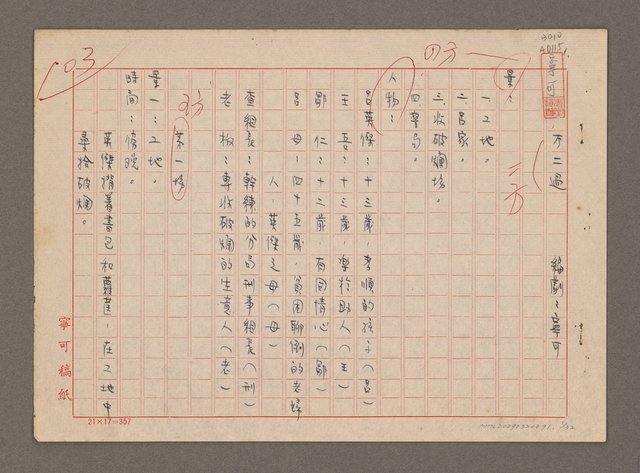 3010
A0115
寧可
不二過
編劇：寧可
景：
一、工地。
二、呂家。
三、收破爛場。
四、警局。
人物：
呂英傑：十三歲，孝順的孩子（呂）
王 吾：十三歲，樂於助人（王）
鄒 仁：十三歲，有同情心（鄒）
呂 母：四十五歲，貧困聊倒的老婦
人，英傑之母（母）
查組長：幹練的分局刑事組長（刑）
老 板：專收破爛的生意人（老）
第一場
景一：工地。
時間：傍晚。
英傑揹着書包和蘿筐，在工地中
尋拾破爛。
103
四方
二方
寧可稿紙
21×17=357
1/32